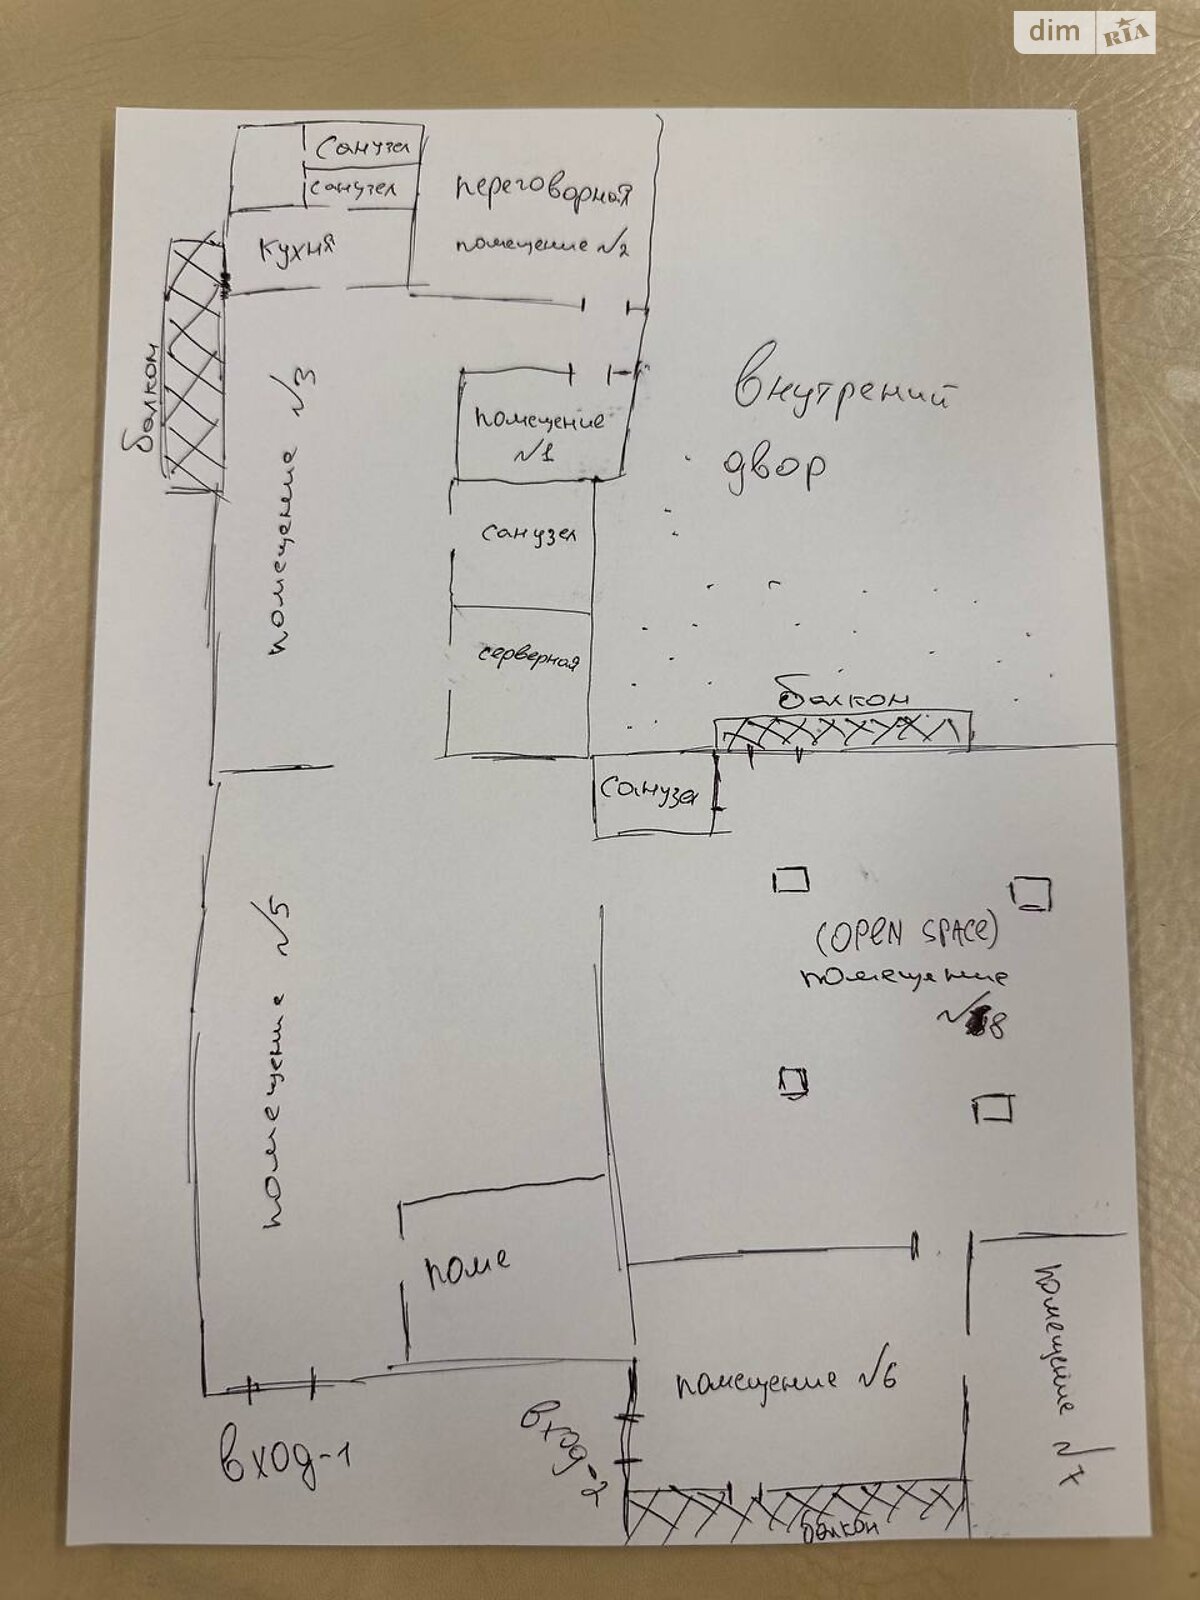 dim RIA
Санузел
санузел
переговорная
помещение №2
кухня
балкон
помещение №3
помещение
№1
внутрений
двор
санузел
серверная
балкон
Санузел
(OPEN SPACE)
помещение
№8
помещение №5
поме
помещение №6
помещение №7
вход-1
вход-2
балкон